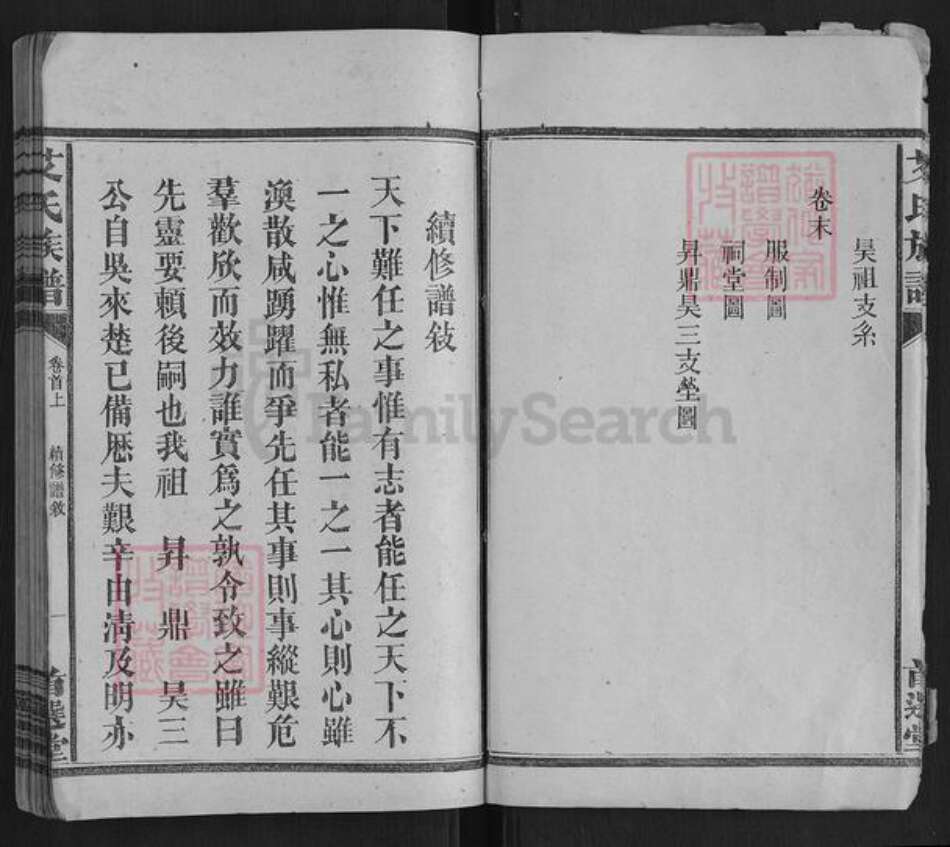 昊祖支系
卷末
服制圖
祠堂圖
昇鼎昊三支塋圖
艾氏族譜
首選堂
續修譜敘
天下難任之事惟有志者能任之天下不
一之心惟無私者能一之一其心則心雖
渙散咸踴躍而爭先任其事則事縱艱危
羣歡欣而效力誰實爲之孰令致之雖曰
先靈要賴後嗣也我祖 昇 鼎 昊三
公自吳來楚已備歷夫艱辛由淸及明亦
艾氏族譜
卷首上
續修譜敘
一
首選堂
FamilySearch